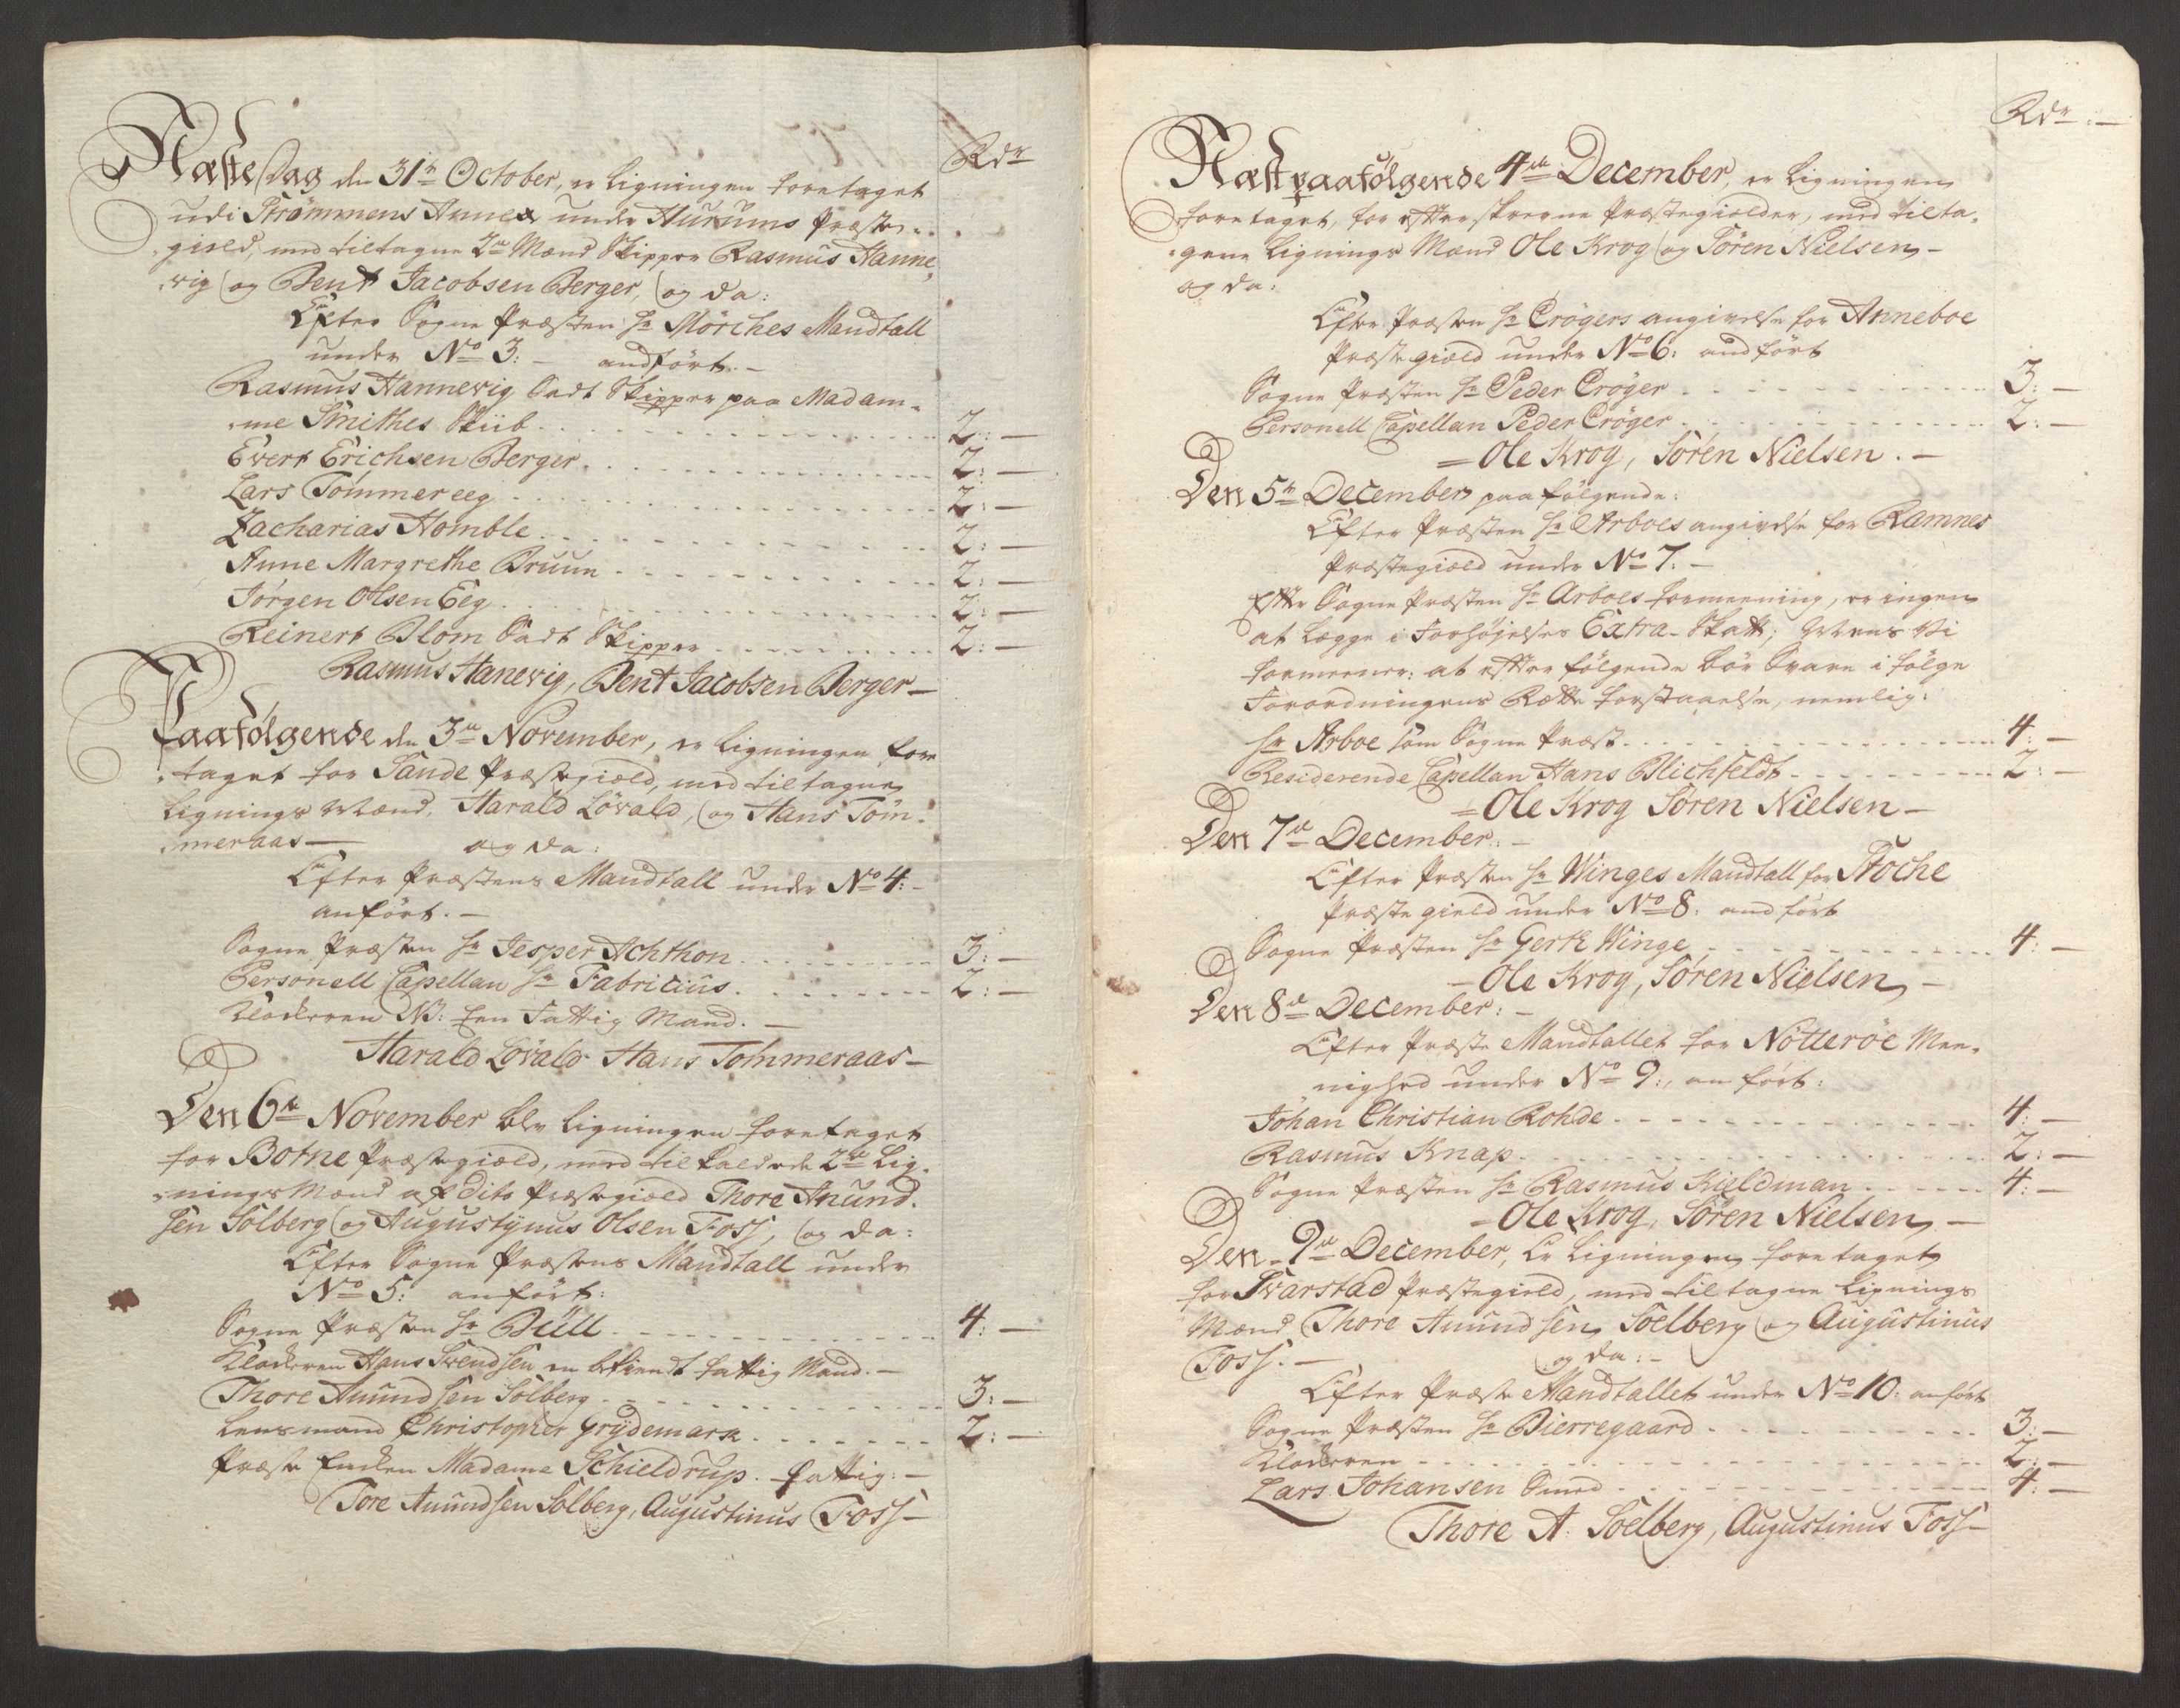 Rdr
Næste Dag den 31te October, er Ligningen foretaget
udi Strømmens Annex under Hurums Præste-
gield, med tiltagne 2de Mænd Skipper Rasmus Hanne-
vig og Bent Jacobsen Berger, og da:
Efter Sogne Præsten Hr Mørches Mandtall
under No 3: - andført. -
Rasmus Hannevig Sadt Skipper paa Madam-
me Smithes Skiib 2: -
Evert Erichsen Berger 2: -
Lars Tømmereeg 2: -
Zacharias Homble 2: -
Anne Margrethe Bruun 2: -
Jørgen Olsen Eeg 2: -
Reinert Blom Sadt Skipper 2: -
Rasmus Hanevig, Bent Jacobsen Berger -
Paafølgende den 3de November, er Ligningen fore
taget for Sande Præstegield, med tiltagne
Lignings Mænd, Harald Løvald, og Hans Tøm-
meraas - og da:
Efter Præstens Mandtall under No 4: -
anført. -
Sogne Præsten Hr Jesper Achthon 3: -
Personell Capellan Hr Fabricius 2: -
Klockeren NB: Een Fattig Mand. -
Harald Løvald Hans Tommeraas -
Den 6te November blev Ligningen foretaget
for Botne Præstegield, med tilkaldede 2de Lig-
nings Mænd af Dito Præstegield Thore Anund-
sen Solberg og Augustynus Olsen Foss, og da:
Efter Sogne Præstens Mandtall under
No 5: anført:
Sogne Præsten Hr Büll 4: -
Klockeren Hans Svendsen en bekiendt fattig Mand. -
Thore Amundsen Solberg 3: -
Lensmand Christopher Grydemark 2: -
Præste Encken Madame Schieldrup. fattig: -
Tore Amundsen Solberg, Augustinus Foss -
Rdr: -
Næstpaafølgende 4de December, er Ligningen
foretaget, for efterskrevne Præstegielder, med tilta-
gene Lignings Mænd Ole Krog og Søren Nielsen -
og da:
Efter Præsten Hr Crøgers angivelse for Anneboe
Præstegield under No 6: andført
Sogne Præsten Hr Peder Crøger 3: -
Personell Capellan Peder Crøger 2: -
= Ole Krog, Søren Nielsen. -
Den 5te December paafølgende:
Efter Præsten Hr Arboes angivelse for Ramnes
Præstegield under No 7: -
Efter Sogne Præsten Hr Arboes formeening, er ingen
at Legge i Forhøjelses Extra-Skatt; Mens Vi
formeener: at efterfølgende bør Svare i følge
Forordningens Rætte forstaaelse, nemlig:
Hr Arboe som Sogne Præst 4: -
Residerende Capellan Hans Blichfeldt 2: -
= Ole Krog Søren Nielsen -
Den 7de December: -
Efter Præsten Hr Winges Mandtall for Stoche
Præstegield under No 8: andført
Sogne Præsten Hr Gerth Winge 4: -
- Ole Krog, Søren Nielsen -
Den 8de December: -
Efter Præste Mandtallet for Nøtterøe Mee-
nighed under No 9:, anført:
Johan Christian Rohde 4: -
Rasmus Knap 2: -
Sogne Præsten Hr Rasmus Kieldman 4: -
- Ole Krog, Søren Nielsen -
Den 9de December, Er Ligningen foretaget
for Svarstad Præstegield, med tiltagne Lignings
Mænd Thore Amundsen Soelberg og Augustinus
Foss. - og da: -
Efter Præste Mandtallet under No 10: anført
Sogne Præsten Hr Bierregaard 3: -
Klockeren 2: -
Lars Johansen Smed 4: -
Thore A: Soelberg, Augustinus Foss -